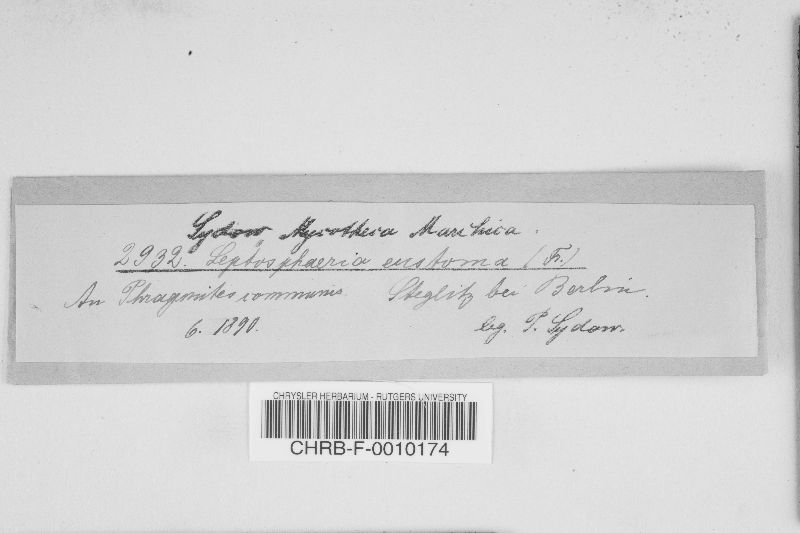 Sydow Mycotheca Marchica.
2932. Leptosphaeria eustoma (Fr.)
An Phragmites communis. Steglitz bei Berlin.
6. 1890. leg. P. Sydow.
CHRYSLER HERBARIUM - RUTGERS UNIVERSITY
CHRB-F-0010174